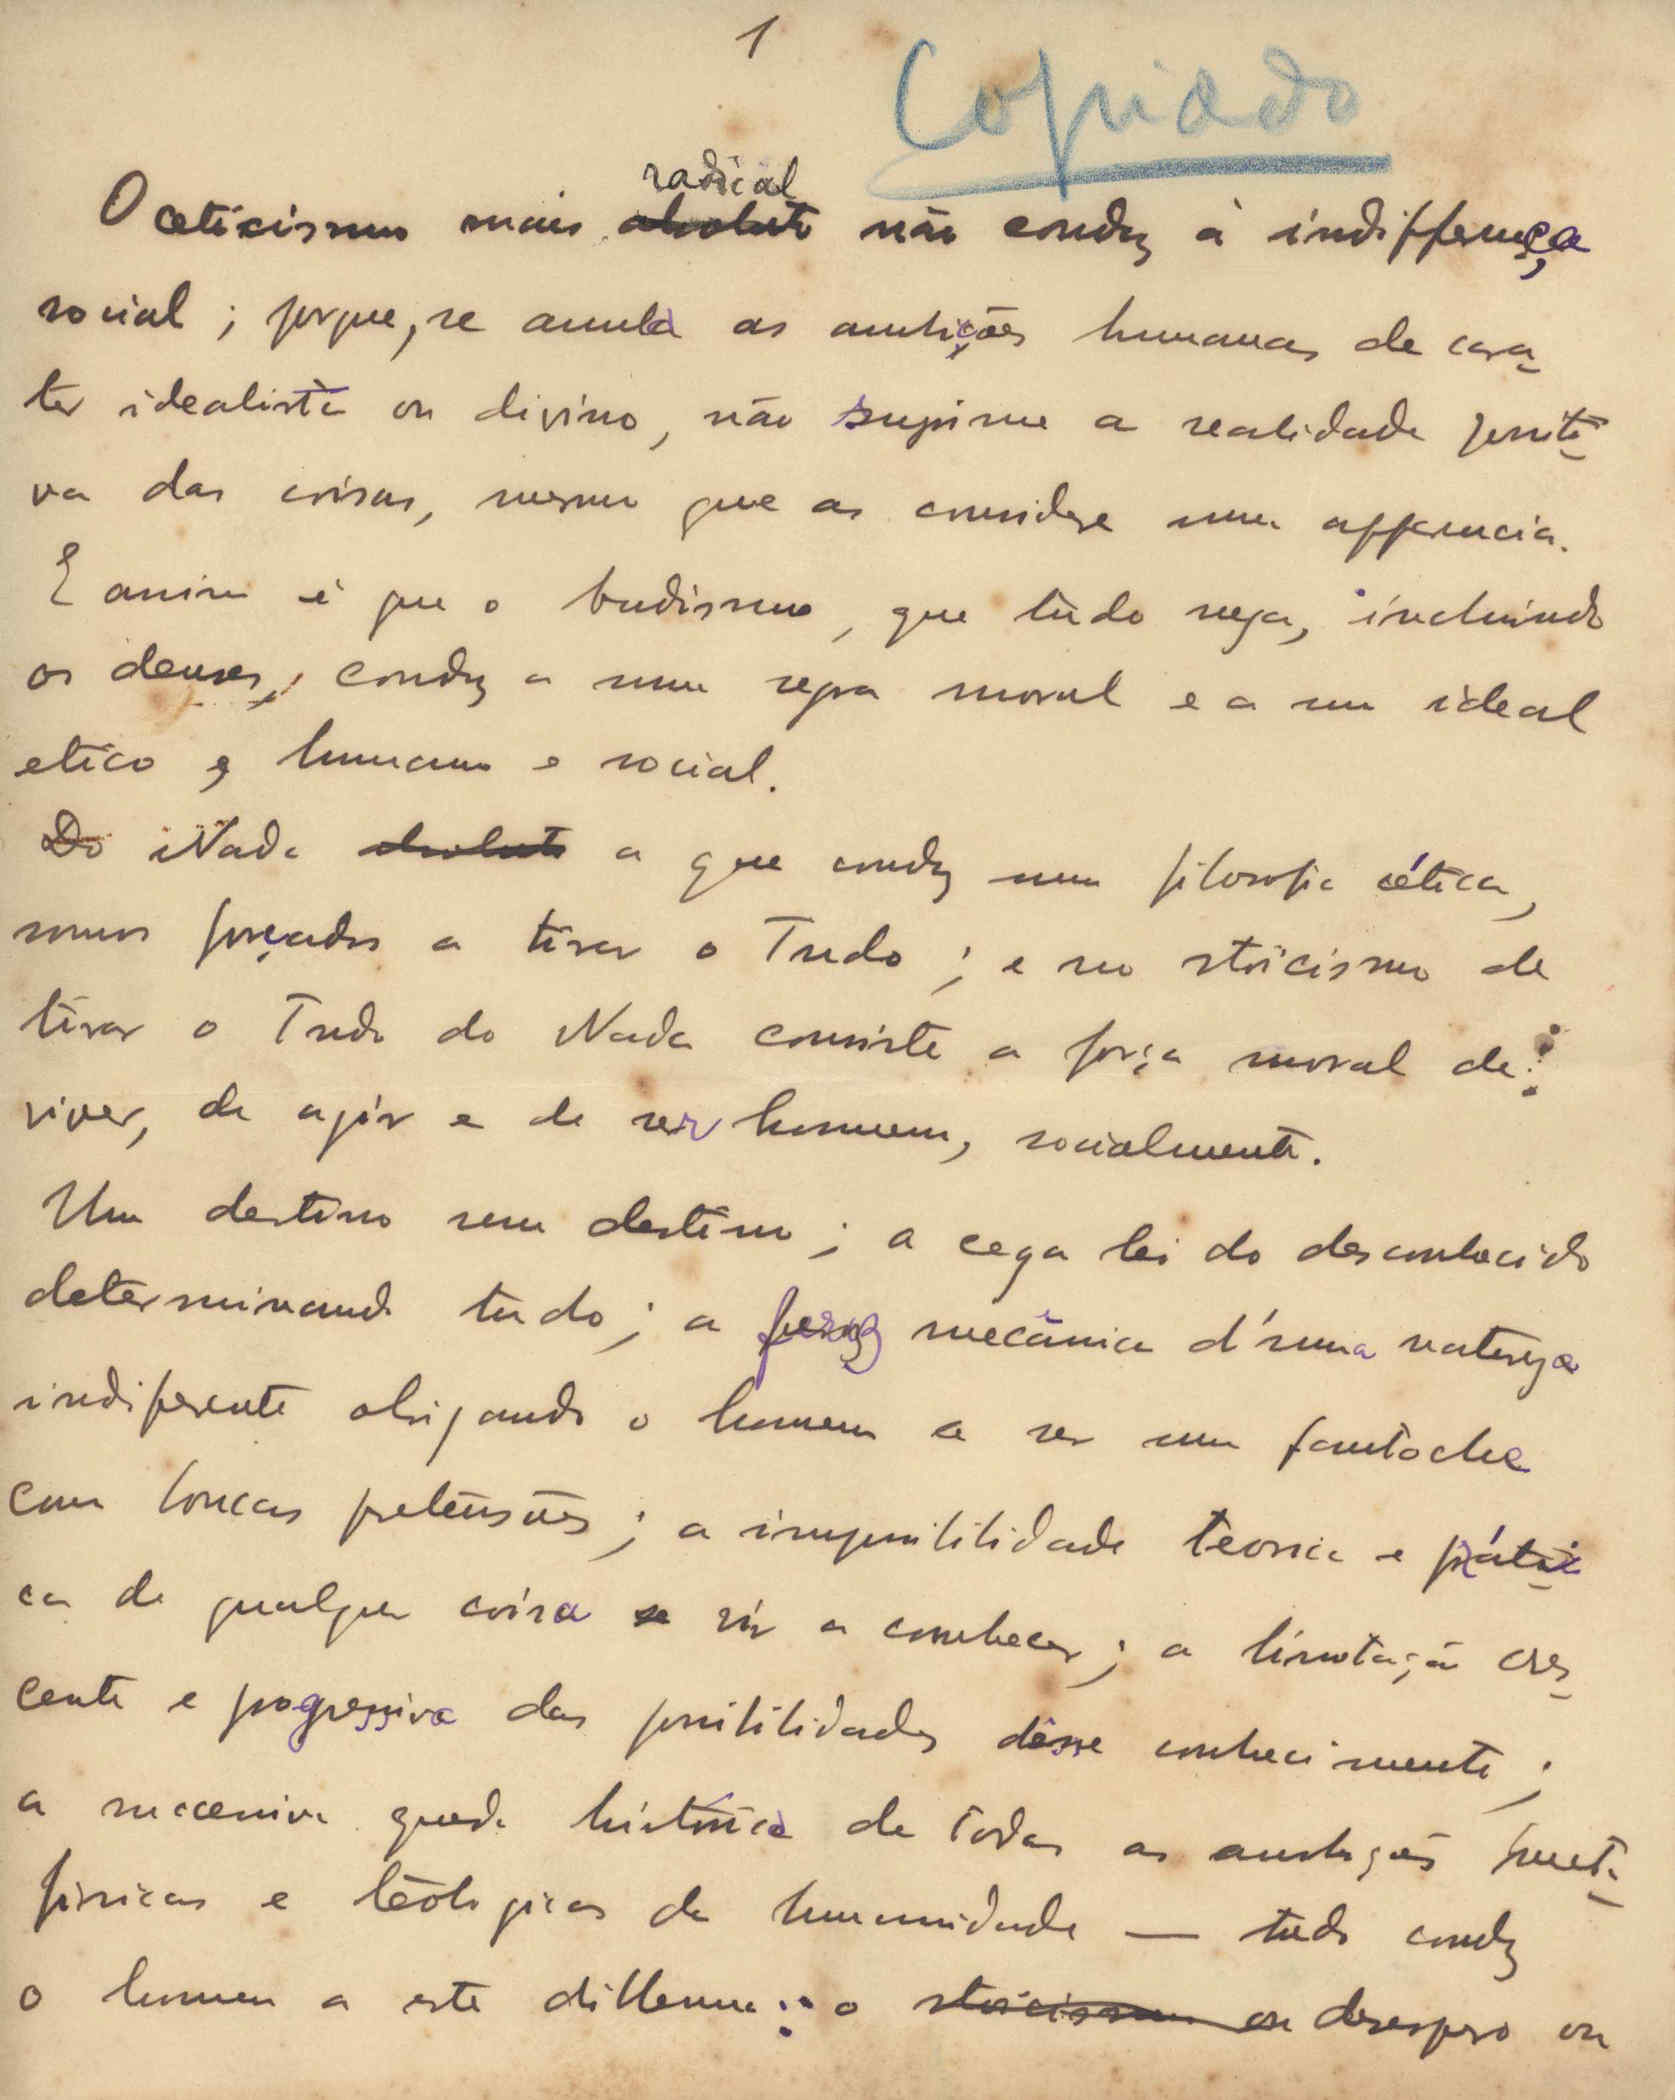 1
Copiado
radical
O ceticismo mais absoluto não conduz à indifferença
social; porque, se anula as ambições humanas de cara-
ter idealista ou divino, não suprime a realidade positi-
va das coisas, mesmo que as considere uma apparencia.
E assim é que o budismo, que tudo nega, incluindo
os deuses, conduz a uma regra moral e a um ideal
etico e humano e social.
Do Nada absoluto a que conduz uma filosofia cética,
somos forçados a tirar o Tudo; e no stoicismo de
tirar o Tudo do Nada consiste a força moral de:
viver, de agir e de ser homem, socialmente.
Um destino sem destino; a cega lei do desconhecido
determinando tudo; a feroz mecânica d'uma natureza
indiferente obrigando o homem a ser um fantoche
com loucas pretensões; a impossibilidade teorica e práti-
ca de qualquer coisa se vir a conhecer; a limitação cres-
cente e progressiva das possibilidades dêsse conhecimento;
a sucessiva queda histórica de todas as ambições meta-
fisicas e teologicas da humanidade — tudo conduz
o homem a este dillema: o stoicismo ou desespero ou